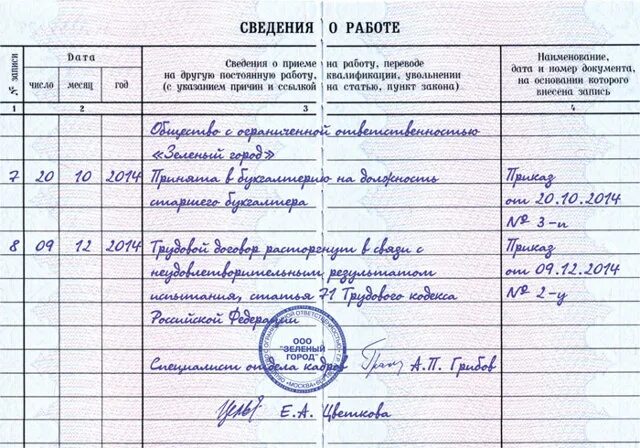 СВЕДЕНИЯ О РАБОТЕ
№ записи
Дата
число месяц год
Сведения о приеме на работу, переводе
на другую постоянную работу, квалификации, увольнении
(с указанием причин и ссылкой на статью, пункт закона)
Наименование,
дата и номер документа,
на основании которого
внесена запись
1 2 3 4
Общество с ограниченной ответственностью
«Зеленый город»
7 20 10 2014 Принята в бухгалтерию на должность Приказ
старшего бухгалтера от 20.10.2014
№ 3-п
8 09 12 2014 Трудовой договор расторгнут в связи с Приказ
неудовлетворительным результатом от 09.12.2014
испытания, статья 71 Трудового кодекса № 2-у
Российской Федерации
ООО
"ЗЕЛЕНЫЙ
ГОРОД"
МОСКВА
Специалист отдела кадров А.П. Грибов
Е.А. Цветкова